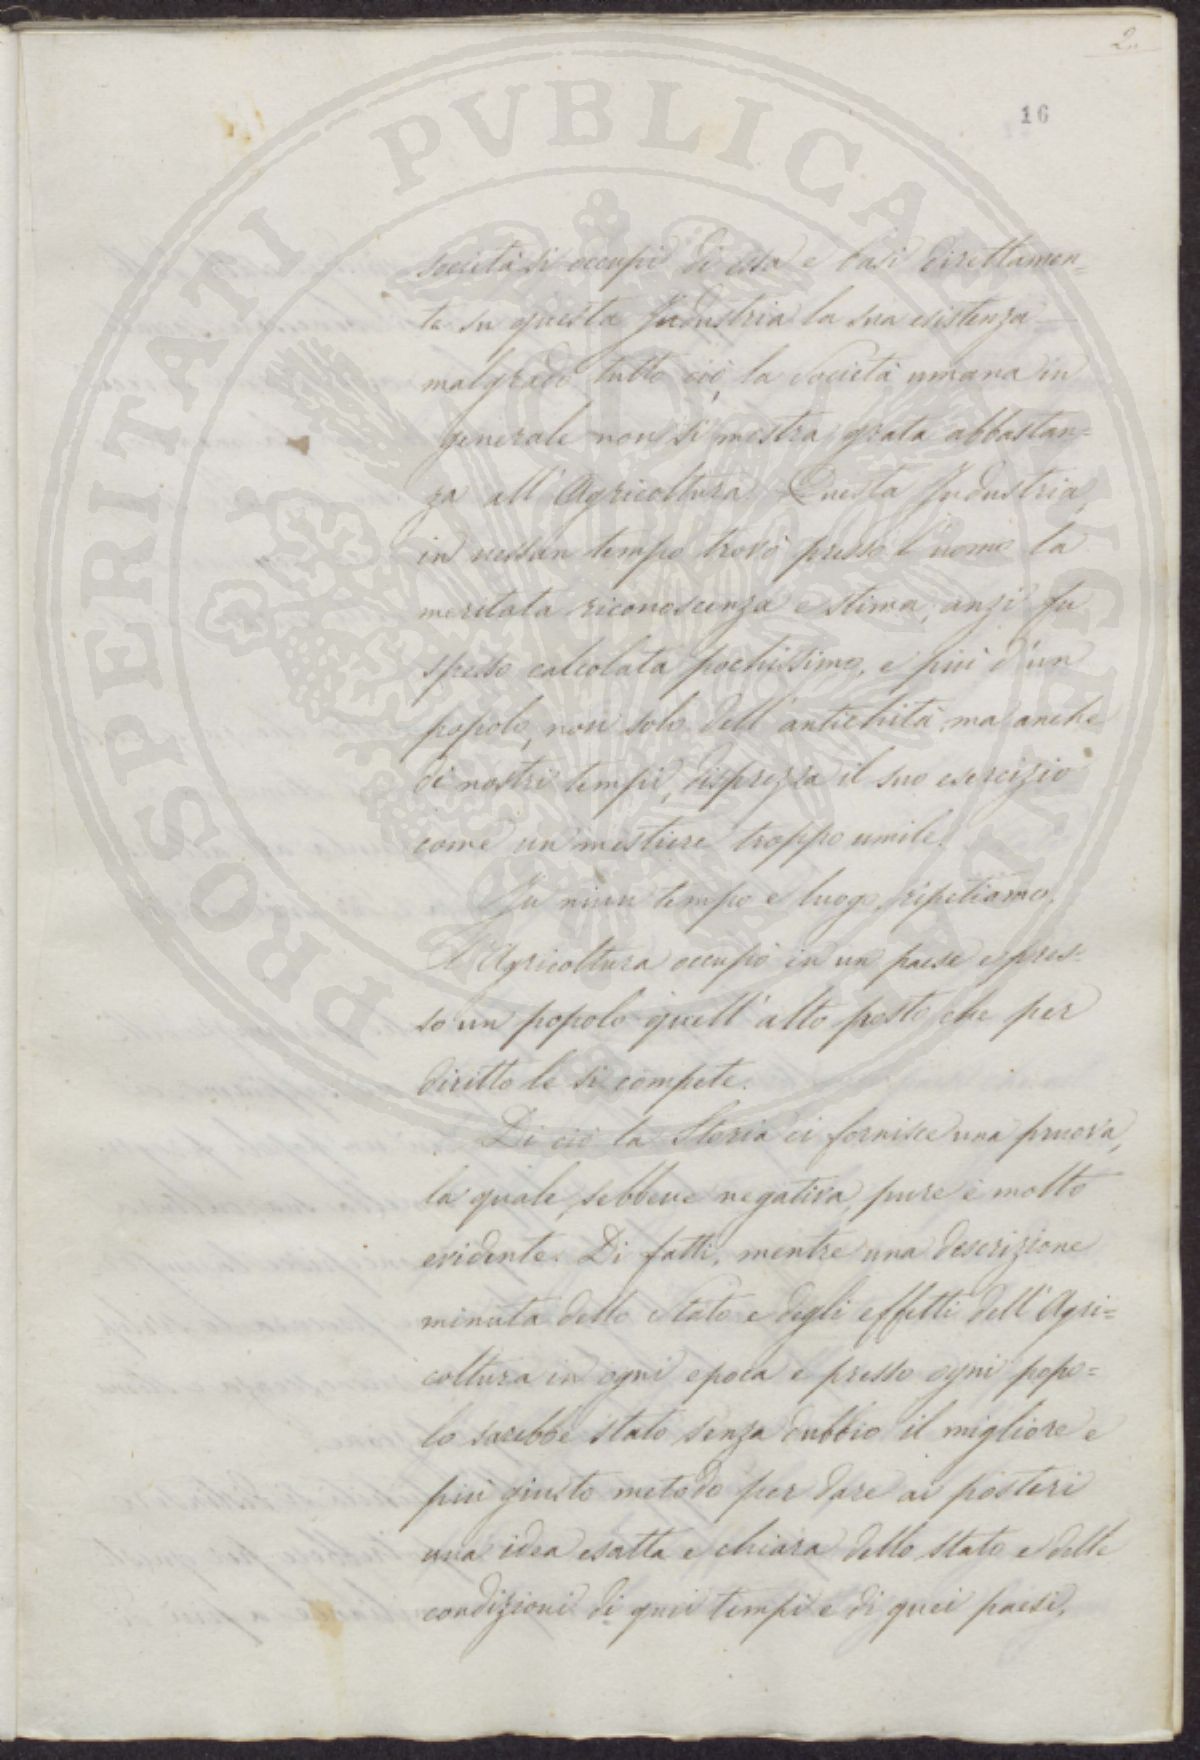 2.
16
PROSPERITATI PVBLICAE AVGENDAE
società si occupi di essa e basi direttamen=
te su questa Industria la sua esistenza —
malgrado tutto ciò, la Società umana in
generale non si mostra grata abbastan=
za all' Agricoltura. Questa Industria,
in nessun tempo trovò presso l'uomo la
meritata riconoscenza e stima, anzi fu
spesso calcolata pochissimo, e più d'un
popolo, non solo dell' antichità, ma anche
di nostri tempi, disprezza il suo esercizio
come un mestiere troppo umile.
In niun tempo e luogo, ripetiamo,
l'Agricoltura occupò in un paese e pres=
so un popolo quell' alto posto che per
diritto le si compete.
Di ciò la Storia ci fornisce una pruova,
la quale, sebbene negativa, pure è molto
evidente. Di fatti, mentre una descrizione
minuta dello stato e degli effetti dell' Agri=
coltura in ogni epoca e presso ogni popo=
lo sarebbe stato senza dubbio il migliore e
più giusto metodo per dare ai posteri
una idea esatta e chiara dello stato e delle
condizioni di quei tempi e di quei paesi,